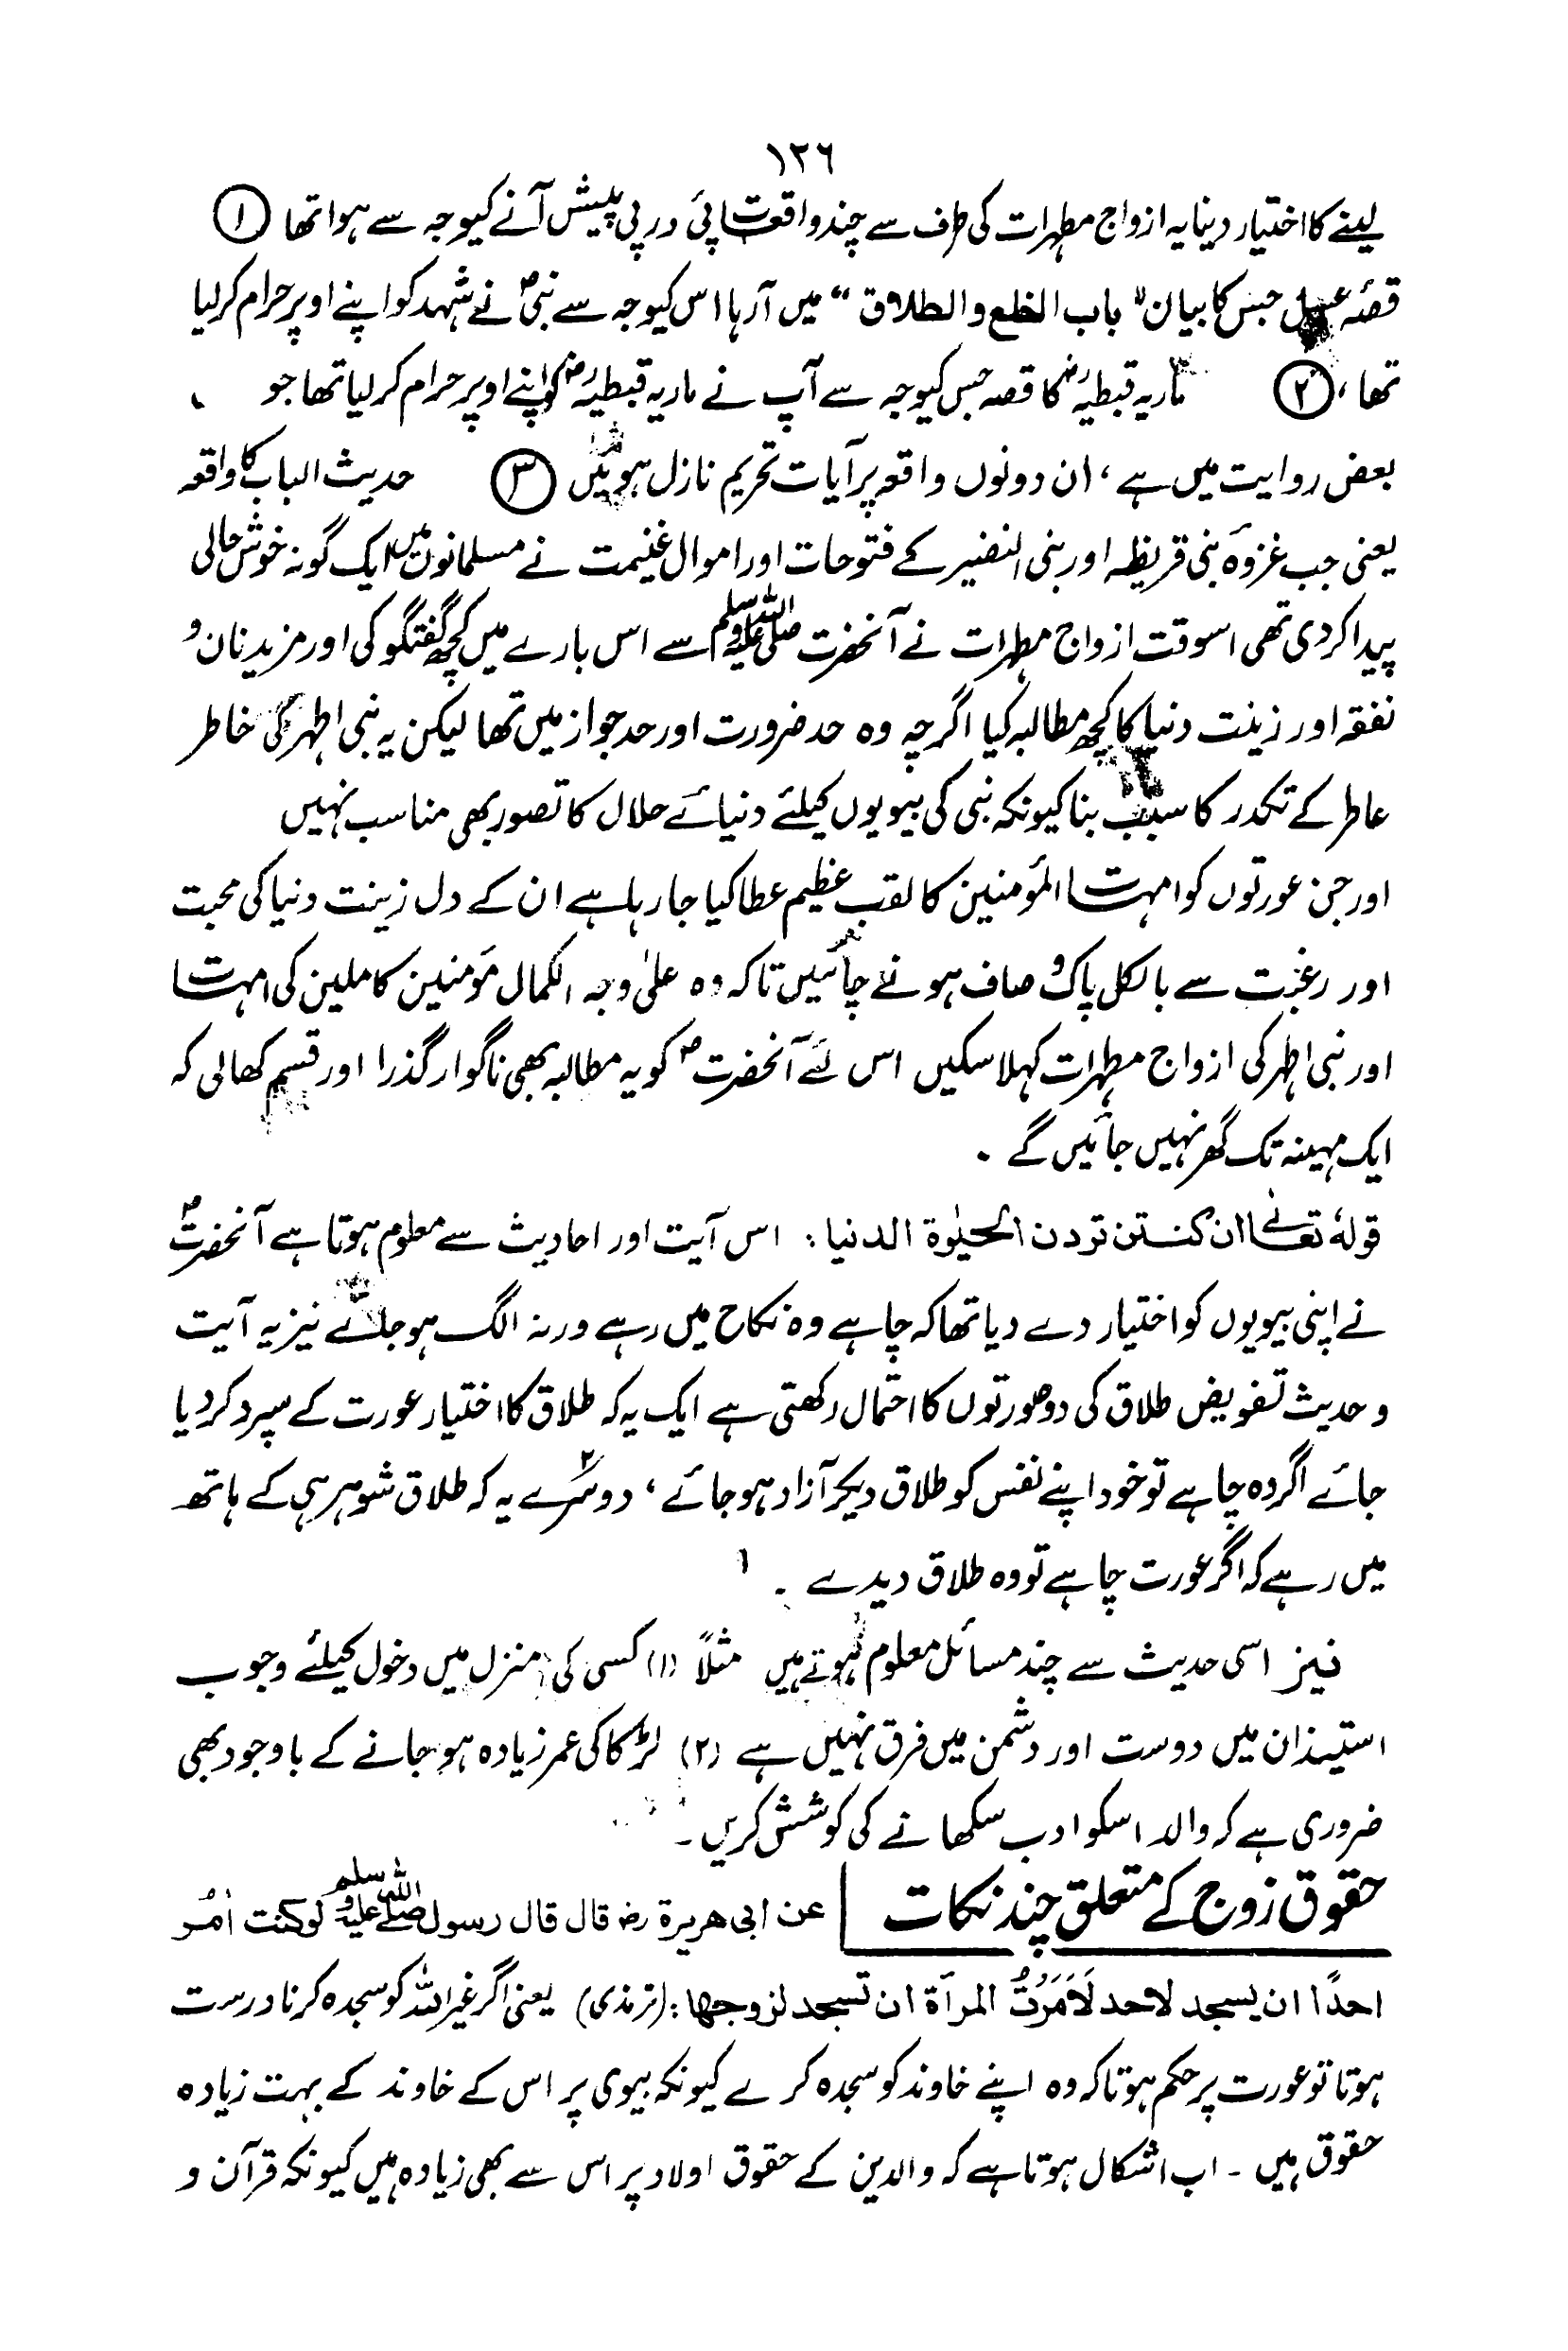 ۱۲۶
لینے کا اختیار دینا یہ ازواج مطہرات کی طرف سے چند واقعات پئ در پی پیش آنے کیوجہ سے ہوا تھا ①
قصۂ عسل جس کا بیان "باب الخلع والطلاق" میں آرہا اس کیوجہ سے نبیؐ نے شہد کو اپنے اوپر حرام کرلیا
تھا، ② ماریہ قبطیہؓ کا قصہ جس کیوجہ سے آپ نے ماریہ قبطیہؓ کو اپنے اوپر حرام کرلیا تھا جو
بعض روایت میں ہے، ان دونوں واقعہ پر آیات تحریم نازل ہوئیں ③ حدیث الباب کا واقعہ
یعنی جب غزوۂ بنی قریظہ اور بنی النضیر کے فتوحات اور اموال غنیمت نے مسلمانوں میں ایک گونہ خوش حالی
پیدا کردی تھی اسوقت ازواج مطہرات نے آنحضرت صلی اللہ علیہ وسلم سے اس بارے میں کچھ گفتگو کی اور مزید نان و
نفقہ اور زینت دنیا کا کچھ مطالبہ کیا اگرچہ وہ حد ضرورت اور حد جواز میں تھا لیکن یہ نبی اطہر کی خاطر
عاطر کے تکدر کا سبب بنا کیونکہ نبی کی بیویوں کیلئے دنیائے حلال کا تصور بھی مناسب نہیں
اور جن عورتوں کو امہات المؤمنین کا لقب عظیم عطا کیا جارہا ہے ان کے دل زینت دنیا کی محبت
اور رغبت سے بالکل پاک و صاف ہونے چاہئیں تاکہ وہ علیٰ وجہ الکمال مؤمنین کاملین کی امہات
اور نبی اطہر کی ازواج مطہرات کہلا سکیں اس لئے آنحضرتؐ کو یہ مطالبہ بھی ناگوار گذرا اور قسم کھالی کہ
ایک مہینہ تک گھر نہیں جائیں گے ۔
قولہٗ تعالیٰ ان کنتن تردن الحیٰوۃ الدنیا : اس آیت اور احادیث سے معلوم ہوتا ہے آنحضرتؐ
نے اپنی بیویوں کو اختیار دے دیا تھا کہ چاہے وہ نکاح میں رہے ورنہ الگ ہوجائے نیز یہ آیت
و حدیث تفویض طلاق کی دو صورتوں کا احتمال رکھتی ہے ایک یہ کہ طلاق کا اختیار عورت کے سپرد کردیا
جائے اگر وہ چاہے تو خود اپنے نفس کو طلاق دیکر آزاد ہوجائے، دوسرے یہ کہ طلاق شوہر ہی کے ہاتھ
میں رہے کہ اگر عورت چاہے تو وہ طلاق دیدے ۔
نیز اسی حدیث سے چند مسائل معلوم ہوتے ہیں مثلاً (۱) کسی کی منزل میں دخول کیلئے وجوب
استیذان میں دوست اور دشمن میں فرق نہیں ہے (۲) لڑکا کی عمر زیادہ ہوجانے کے باوجود بھی
ضروری ہے کہ والد اسکو ادب سکھانے کی کوشش کریں ۔
حقوق زوج کے متعلق چند نکات | عن ابی ھریرۃ رض قال قال رسول اللہ صلی اللہ علیہ وسلم لو کنت اٰمُر
احدًا ان یسجد لاحد لَاَمَرْتُ المرأۃ ان تسجد لزوجھا : (ترمذی) یعنی اگر غیر اللہ کو سجدہ کرنا درست
ہوتا تو عورت پر حکم ہوتا کہ وہ اپنے خاوند کو سجدہ کرے کیونکہ بیوی پر اس کے خاوند کے بہت زیادہ
حقوق ہیں ۔ اب اشکال ہوتا ہے کہ والدین کے حقوق اولاد پر اس سے بھی زیادہ ہیں کیونکہ قرآن و